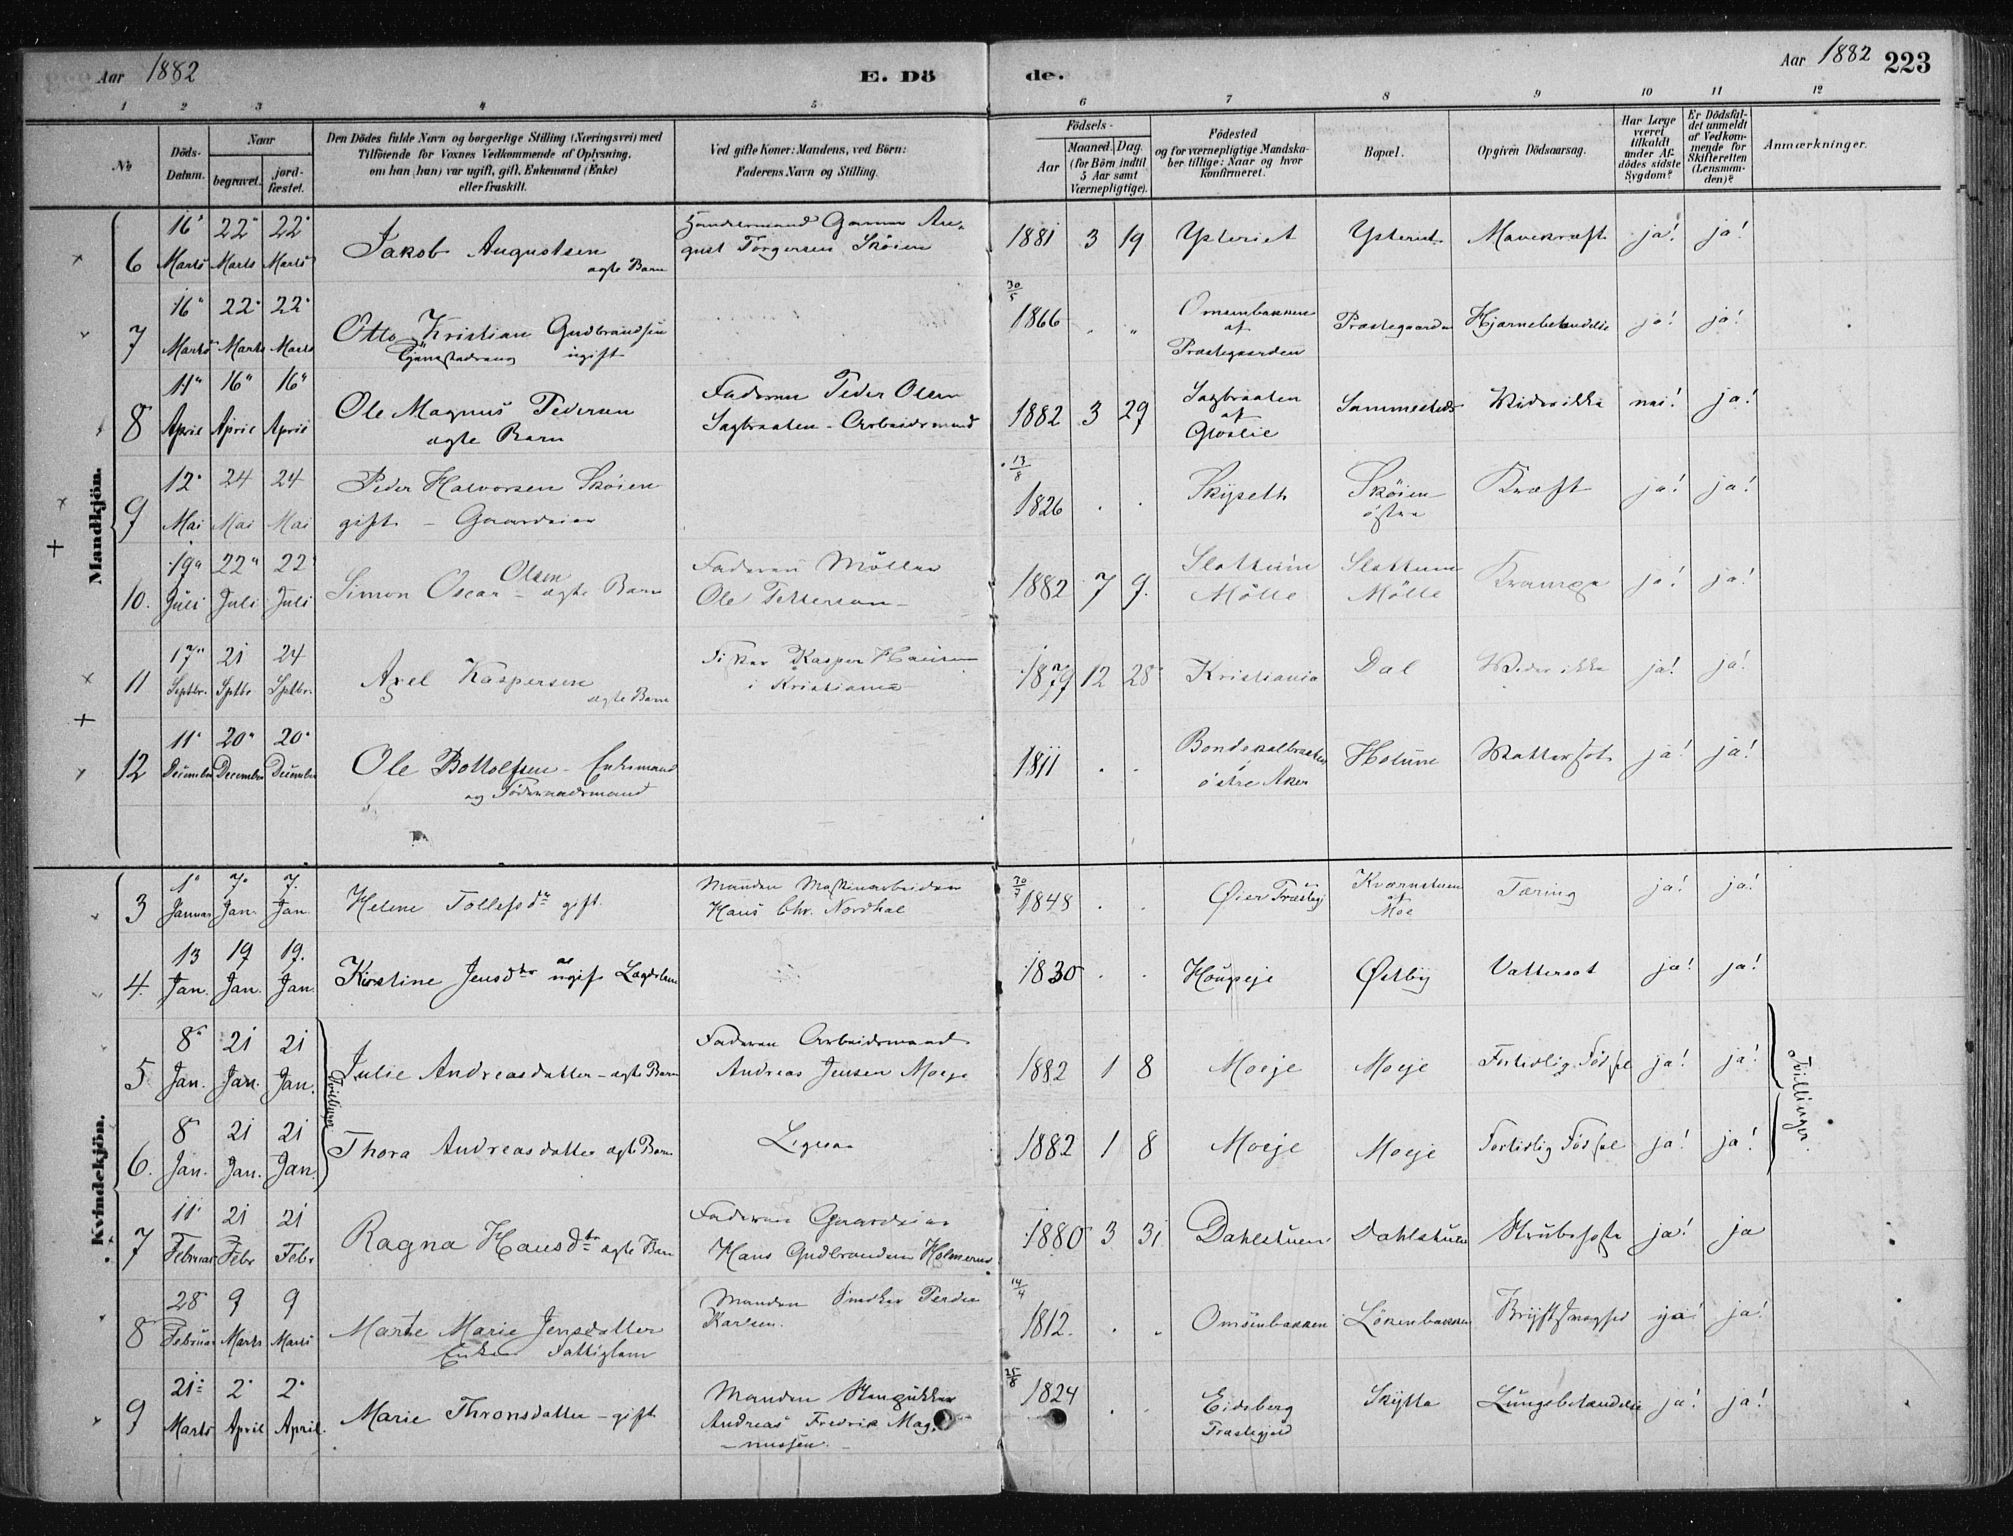 Aar 1882 E. Dö de. Aar 1882 223
1 2 3 4 5 6 7 8 9 10 11 12
No
Döds-Datum.
Naar
begravet.
jordfæstet.
Den Dödes fulde Navn og borgerlige Stilling (Næringsvei) med
Tilföiende for Voxnes Vedkommende af Oplysning,
om han (hun) var ugift, gift, Enkemand (Enke)
eller fraskilt.
Ved gifte Koner: Mandens, ved Börn:
Faderens Navn og Stilling.
Födsels-
Aar
Maaned. Dag.
(for Börn indtil
5 Aar samt
Værnepligtige).
Födested
og for værnepligtige Mandska-
ber tillige: Naar og hvor
konfirmeret.
Bopæl.
Opgiven Dödsaarsag.
Har Læge
været
tilkaldt
under Af-
dödes sidste
Sygdom?
Er Dödsfal-
det anmeldt
af Vedkom-
mende for
Skifteretten
(Lensman-
den)?
Anmærkninger.
Mandkjön.
6 16 Marts 22 Marts 22 Marts Jakob Augustsen ægte Barn August Torgersen Sköien 1881 3 19 Ysteriet Ysteriet Mavekræft ja! ja!
7 16 Marts 22 Marts 22 Marts Otto Kristian Gudbrandsen ugift 30/5 1866 af Præstegaarden Præstegaarden Hjernebetændelse ja! ja!
8 11 April 16 April 16 April Ole Magnus Pedersen ægte Barn Faderen Peder Olsen Sagbraaten - Arbeidsmand 1882 3 29 Sagbraaten af Gloslie Sammesteds nei! ja!
9 12 Mai 24 Mai 24 Mai Peder Halvorsen Sköien gift - Gaardeier 13/8 1826 Skyseth Sköien östre Kræft ja! ja!
10. 19 Juli 22 Juli 22 Juli Simon Oscar Olsen - ægte Barn Faderen Möller Ole Pettersen 1882 7 9. Slattum Mölle Slattum Mölle Krampe ja! ja!
11 17 Septbr. 21 Sptbr 24 Sptbr. Axel Kaspersen ægte Barn Kasper Hansen i Kristiania 1879 12 28 Kristiania Dal ja! ja!
12 11 December 20 December 20 December Ole Bottolfsen - Enkemand og Föderaadsmand 1811 östre Aker Holum Vattersot ja! ja!
Kvindekjön.
3 1 Januar 7 Jan. 7. Jan. Helene Tollefsdr gift. Manden Maskinarbeider Hans Chr. Nordhal 1848 Øier Præstegj Kværnstuen af Moe Tæring ja! ja!
4. 13 Jan. 19 Jan. 19. Jan. Kirstine Jensdtr ugift Lægdslem 1830 Houpeje Østby Vattersot ja! ja!
5 8 Jan. 21 Jan. 21 Jan. Julie Andreasdatter - ægte Barn Faderen Arbeidsmand Andreas Jensen Moeje 1882 1 8 Moeje Moeje Fortidlig Födsel ja! ja!
Tvillinger
Tvillinger.
6. 8 Jan. 21 Jan. 21 Jan. Thora Andreasdatter ægte Barn Ligesaa 1882 1 8 Moeje Moeje Fortidlig Födsel ja! ja!
7 11 Februar 21 Febr 21 Febr Ragna Hansdtr ægte Barn Faderen Gaardeier Hans Gudbrandsen Holmerud 1880 3 31 Dahlstuen Dahlstuen Strubehoste ja! ja
8 28 Februar 9 Marts 9 Marts Marte Marie Jensdatter Enke Fattiglem Manden Snedker Peder Karlsen. 14/4 1812. Omsenbakken Lökenbakken ja! ja!
9 21 Marts 2 April 2 April. Marie Thronsdatter - gift Manden Stenhukker Andreas Fredrik Mag-nussen. 25/8 1824 Eidsberg Præstegjeld Skytta Lungebetændelse ja! ja!